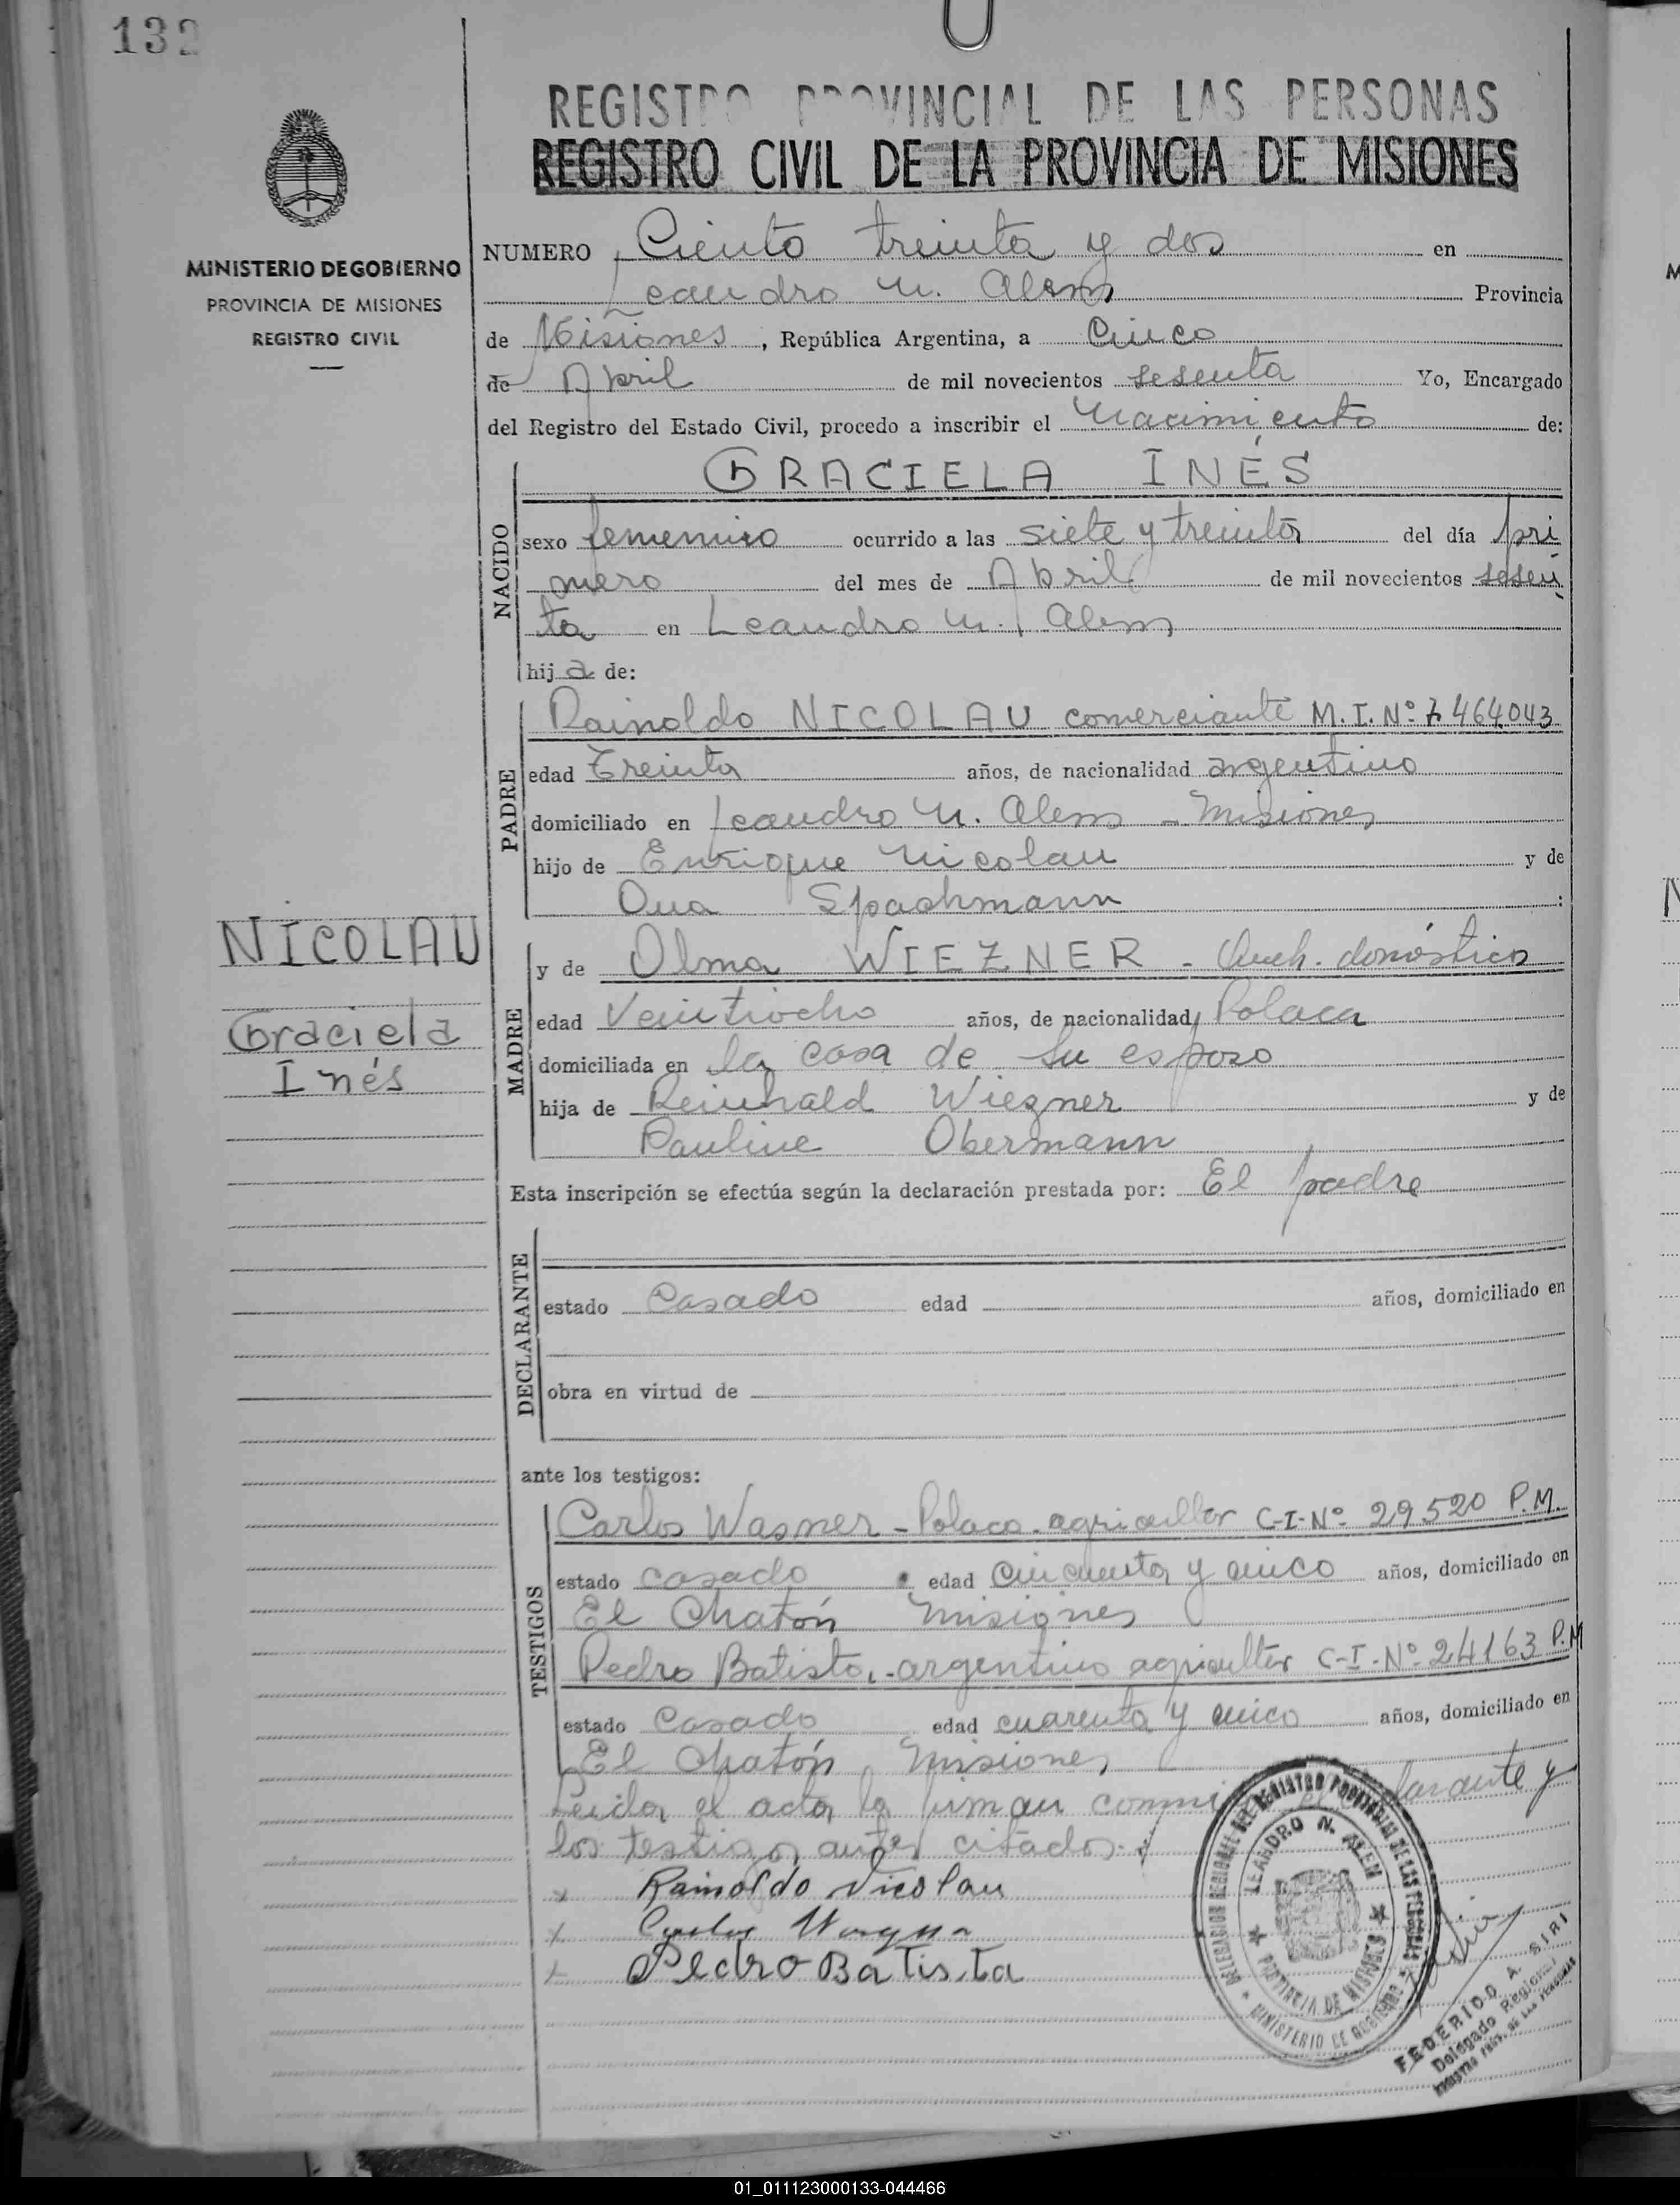 132
REGISTRO PROVINCIAL DE LAS PERSONAS
REGISTRO CIVIL DE LA PROVINCIA DE MISIONES
MINISTERIO DE GOBIERNO
PROVINCIA DE MISIONES
REGISTRO CIVIL
NUMERO Ciento treinta y dos en
Leandro N. Alem Provincia
de Misiones, República Argentina, a Cinco
de Abril de mil novecientos sesenta Yo, Encargado
del Registro del Estado Civil, procedo a inscribir el Nacimiento de:
GRACIELA INÉS
NACIDO
sexo femenino ocurrido a las siete y treinta del día pri
mero del mes de Abril de mil novecientos sesen
ta en Leandro N. Alem
hija de:
PADRE
Rainoldo NICOLAU comerciante M.I. Nº 7464043
edad Treinta años, de nacionalidad argentino
domiciliado en Leandro N. Alem - Misiones
hijo de Enrique Nicolau y de
Ana Spachmann :
NICOLAU
Graciela
Inés
MADRE
y de Olma WIEZNER - Queh. doméstico
edad Veintiocho años, de nacionalidad Polaca
domiciliada en la casa de su esposo
hija de Reinhald Wiezner y de
Pauline Obermann
Esta inscripción se efectúa según la declaración prestada por: El padre
DECLARANTE
estado Casado edad años, domiciliado en
obra en virtud de
ante los testigos:
TESTIGOS
Carlos Wagner - Polaco - agricultor C-I-Nº 29520 P.M.
estado casado edad cincuenta y cinco años, domiciliado en
El Chatón Misiones
Pedro Batista, - argentino agricultor C-I-Nº 24163 P.M
estado Casado edad cuarenta y cinco años, domiciliado en
El Chatón, Misiones
Leída el acta la firman conmigo el declarante y
los testigos antes citados.
x Rainoldo Nicolau
x Carlos Wagner
x Pedro Batista
DELEGACION REGIONAL DEL REGISTRO PROVINCIAL DE LAS PERSONAS
LEANDRO N. ALEM
PROVINCIA DE MISIONES
MINISTERIO DE GOBIERNO
FEDERICO A. SIRI
Delegado Regional
REGISTRO PROV. DE LAS PERSONAS
01_011123000133-044466